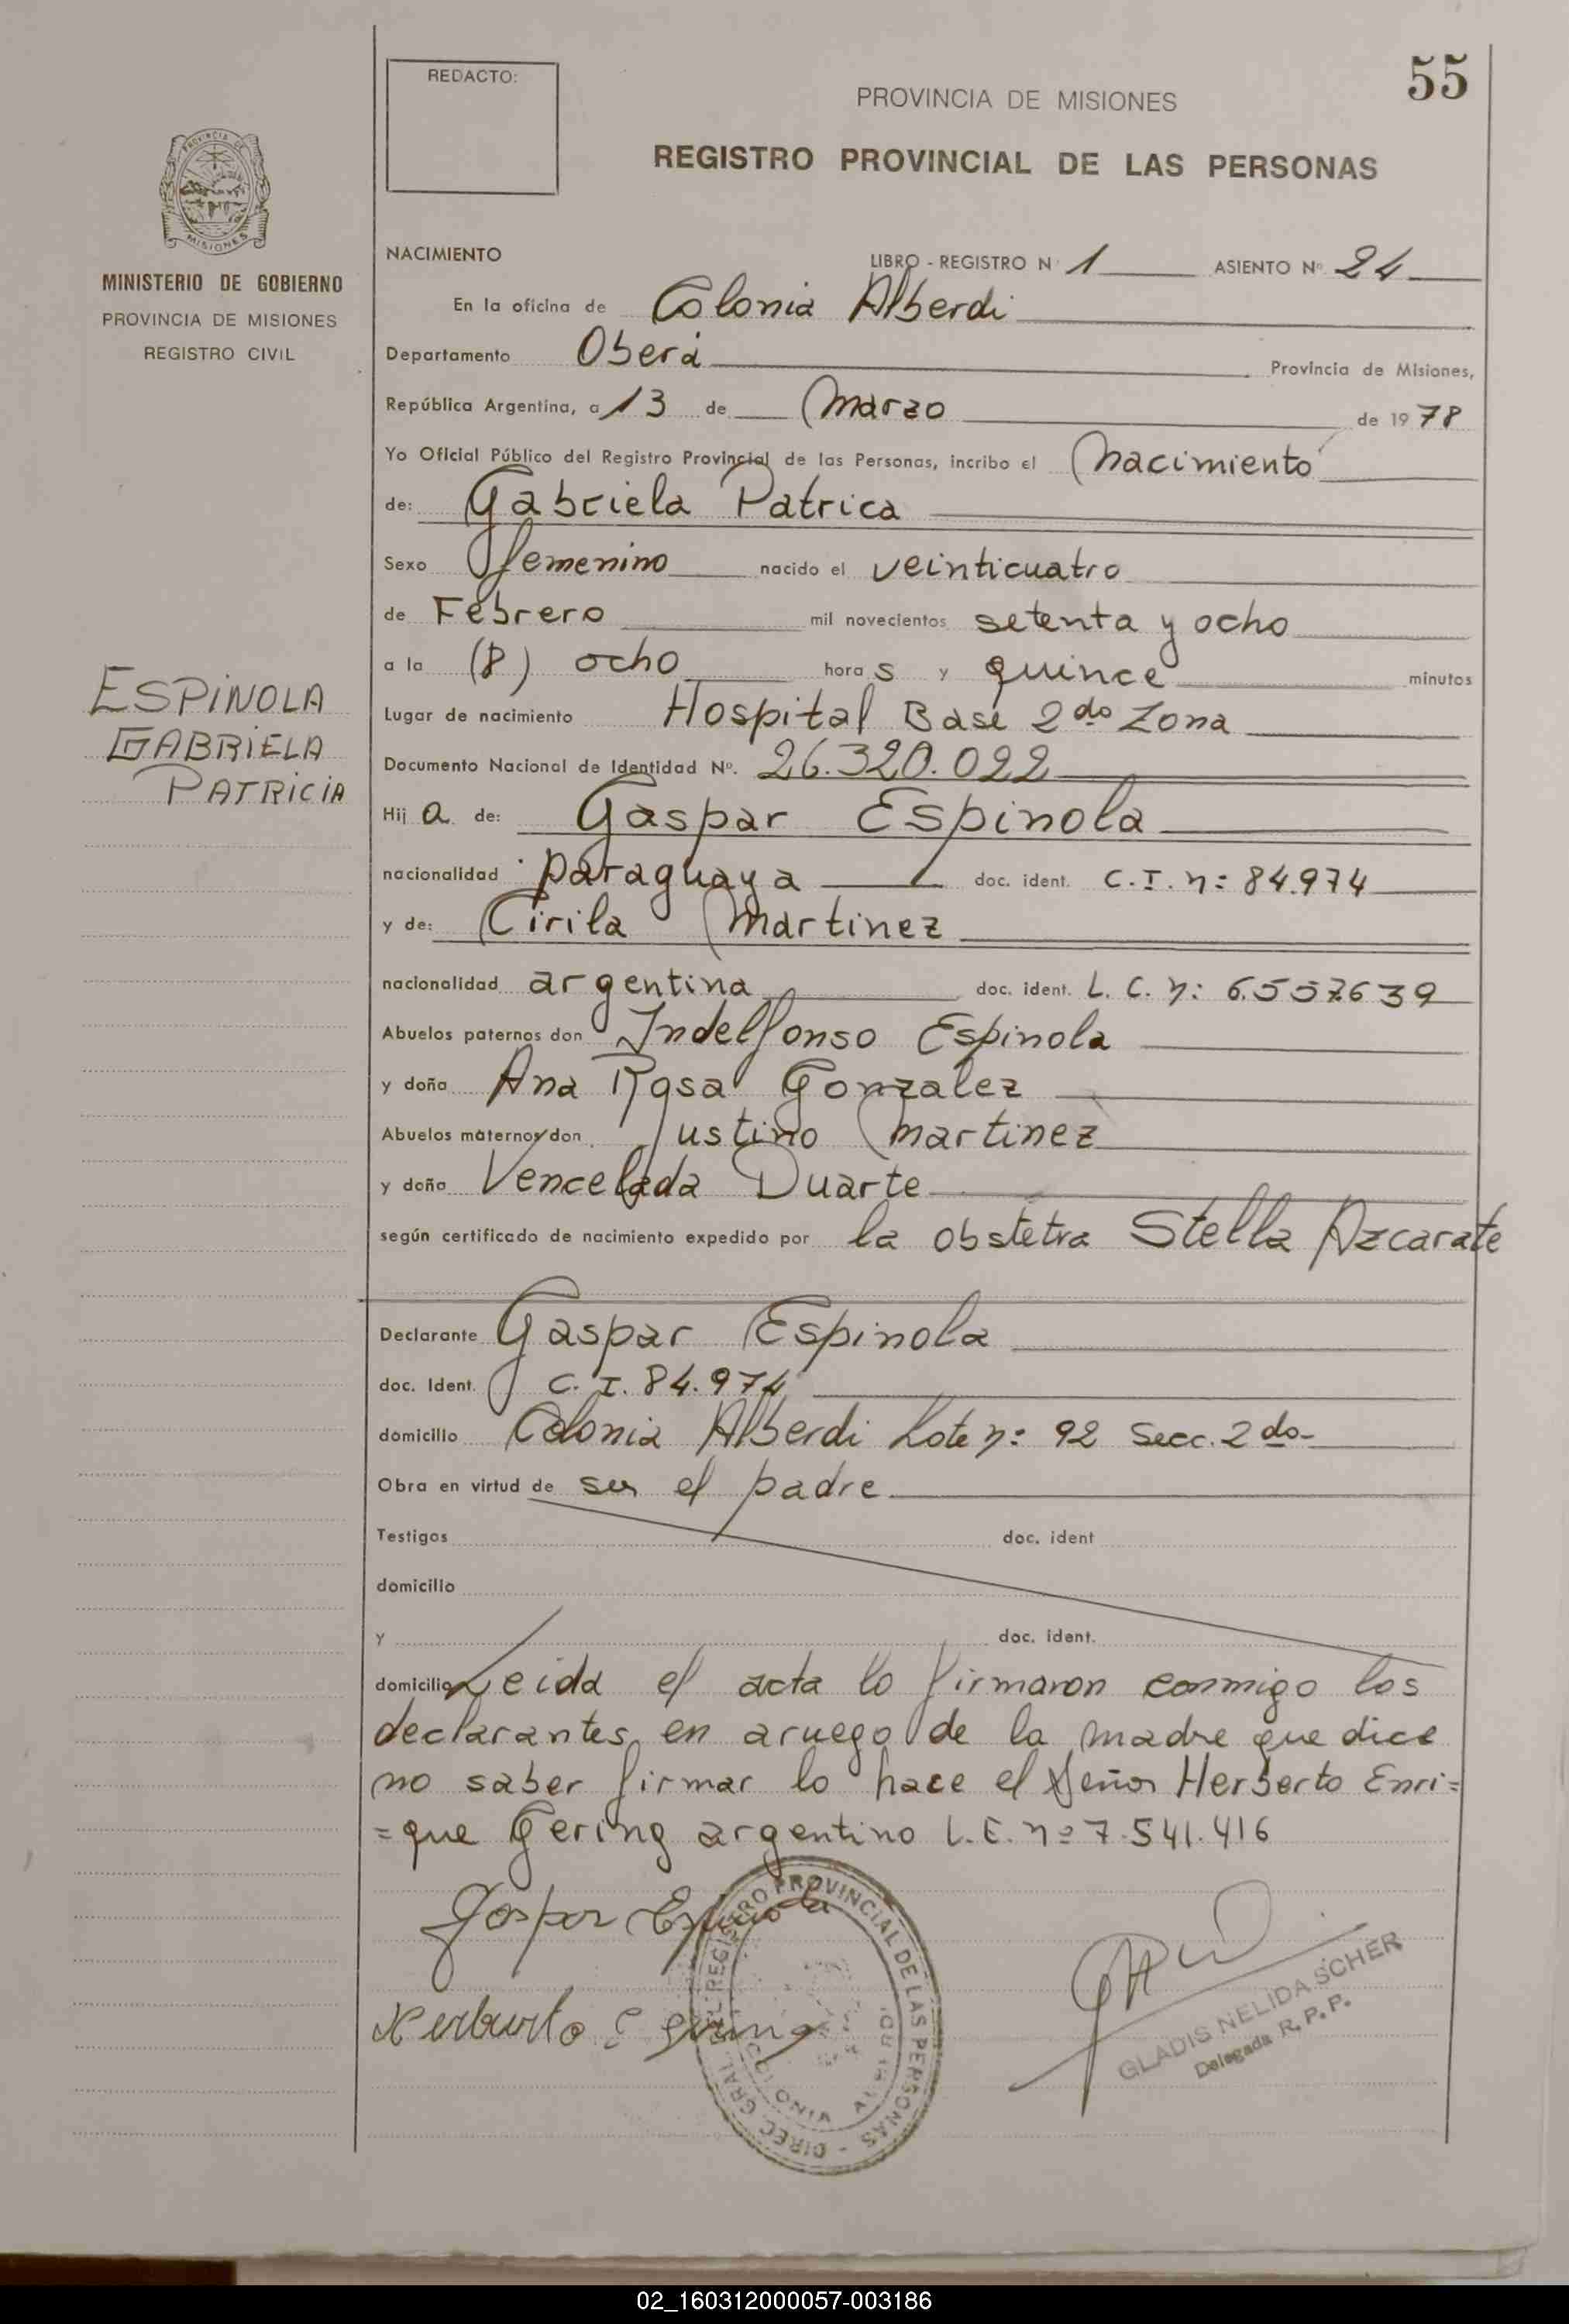 55
REDACTO:
PROVINCIA DE MISIONES
REGISTRO PROVINCIAL DE LAS PERSONAS
PROVINCIA DE
MISIONES
MINISTERIO DE GOBIERNO
PROVINCIA DE MISIONES
REGISTRO CIVIL
NACIMIENTO LIBRO - REGISTRO N° 1 ASIENTO N° 24
En la oficina de Colonia Alberdi
Departamento Oberá Provincia de Misiones,
República Argentina, a 13 de Marzo de 1978
Yo Oficial Público del Registro Provincial de las Personas, incribo el Nacimiento
de: Gabriela Patrica
Sexo femenino nacido el veinticuatro
de Febrero mil novecientos setenta y ocho
a la (8) ocho hora s y quince minutos
ESPINOLA
GABRIELA
PATRICIA
Lugar de nacimiento Hospital Base 2do Zona
Documento Nacional de Identidad N°. 26.320.022
Hij a de: Gaspar Espinola
nacionalidad paraguaya doc. ident. C.I. n: 84.974
y de: Cirila Martinez
nacionalidad argentina doc. ident. L.C. n: 6.557.639
Abuelos paternos don Indelfonso Espinola
y doña Ana Rosa Gonzalez
Abuelos maternos don Justino Martinez
y doña Vencelada Duarte
según certificado de nacimiento expedido por la obstetra Stella Azcarate
Declarante Gaspar Espinola
doc. Ident. C.I. 84.974
domicilio Colonia Alberdi Lote n: 92 Secc. 2do
Obra en virtud de ser el padre
Testigos doc. ident
domicilio
y doc. ident.
domicilio Leida el acta lo firmaron conmigo los
declarantes, en aruego de la madre que dice
no saber firmar lo hace el Señor Herberto Enri=
=que Gering argentino L.E. nº 7.541.416
Gaspar Espinola
Herberto E Gering
DIREC. GRAL. DEL REGISTRO PROVINCIAL DE LAS PERSONAS
COLONIA ALBERDI
GLADIS NELIDA SCHER
Delegada R.P.P.
02_160312000057-003186